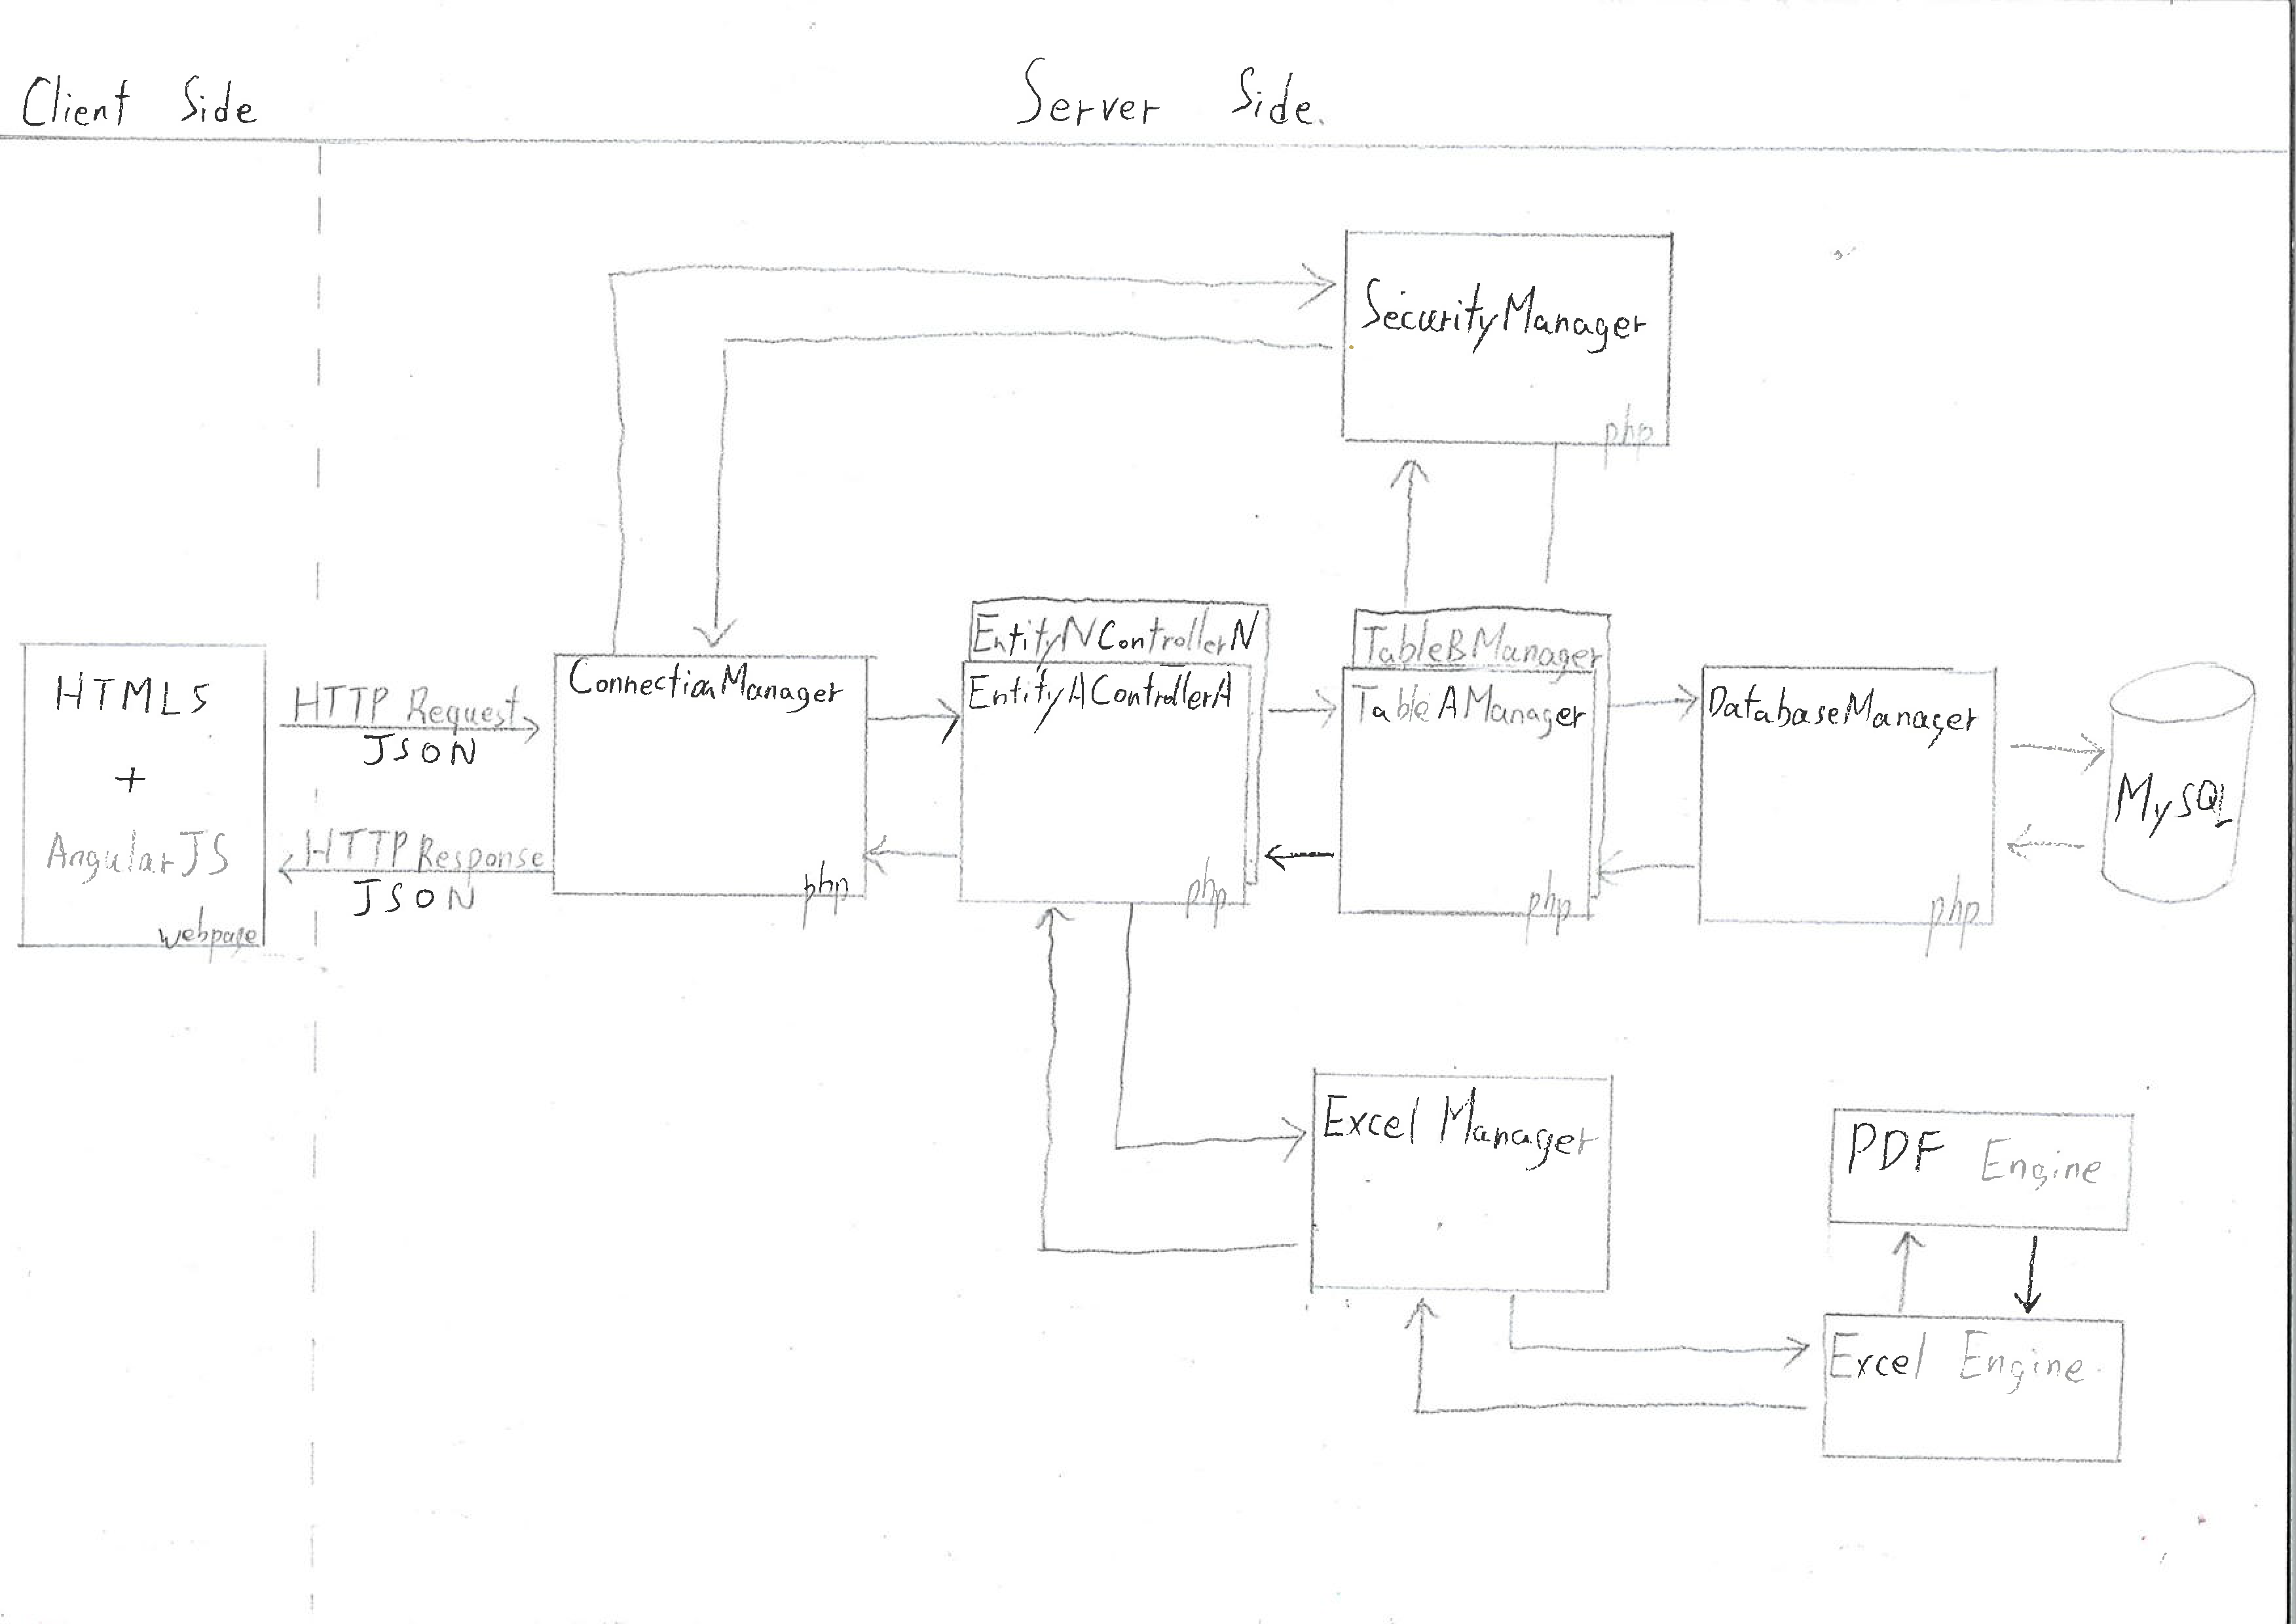 Client Side
Server Side.
SecurityManager
php
HTML5
+
AngularJS
webpage
HTTP Request
JSON
HTTP Response
JSON
ConnectionManager
php
EntityNControllerN
EntityAControllerA
php
TableBManager
TableAManager
php
DatabaseManager
php
MySQL
Excel Manager
PDF Engine
Excel Engine